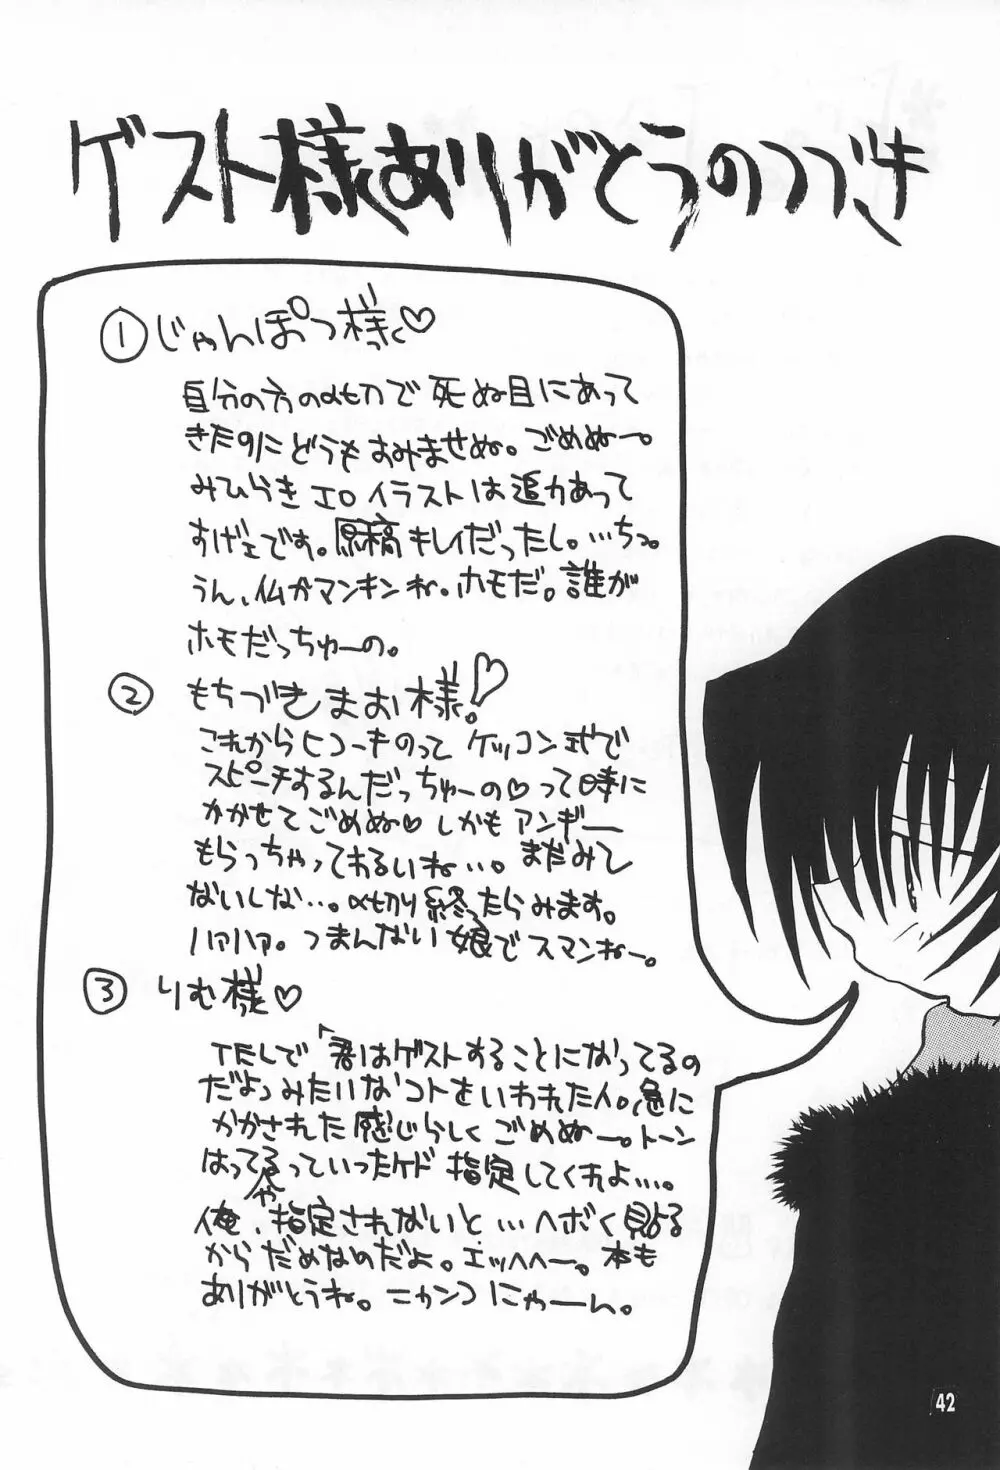 ゲスト様ありがとうのつづき
①じゃんぽつ様♡
自分の方の〆切で死ぬ目にあって
きたのにどうもすみませぬ。ごめぬー。
みひらきエロイラストは迫力あって
すげェです。原稿キレイだったし。…ちっ。
うん、仏がマンキンね。ホモだ。誰が
ホモだっちゅーの。
② もちづきまお様!♡
これからヒコーキのって ケッコン式で
スピーチするんだっちゅーの♡って時に
かかせてごめぬ♡しかもアンギー
もらっちゃってわるいね…。まだみて
ないしな…。〆切り終ったらみます。
ハァハァ。つまんない娘でスマンねー。
③ りむ様♡
TELで「君はゲストすることになってるの
だよ」みたいなコトをいわれた人。急に
かかされた感じらしくごめぬー。トーン
はってるっていったケド指定してくれよ…。
や
俺、指定されないと…ヘボく貼る
からだめなのだよ。エッヘヘー。本も
ありがとうね。ニャンコにゃーん。
42